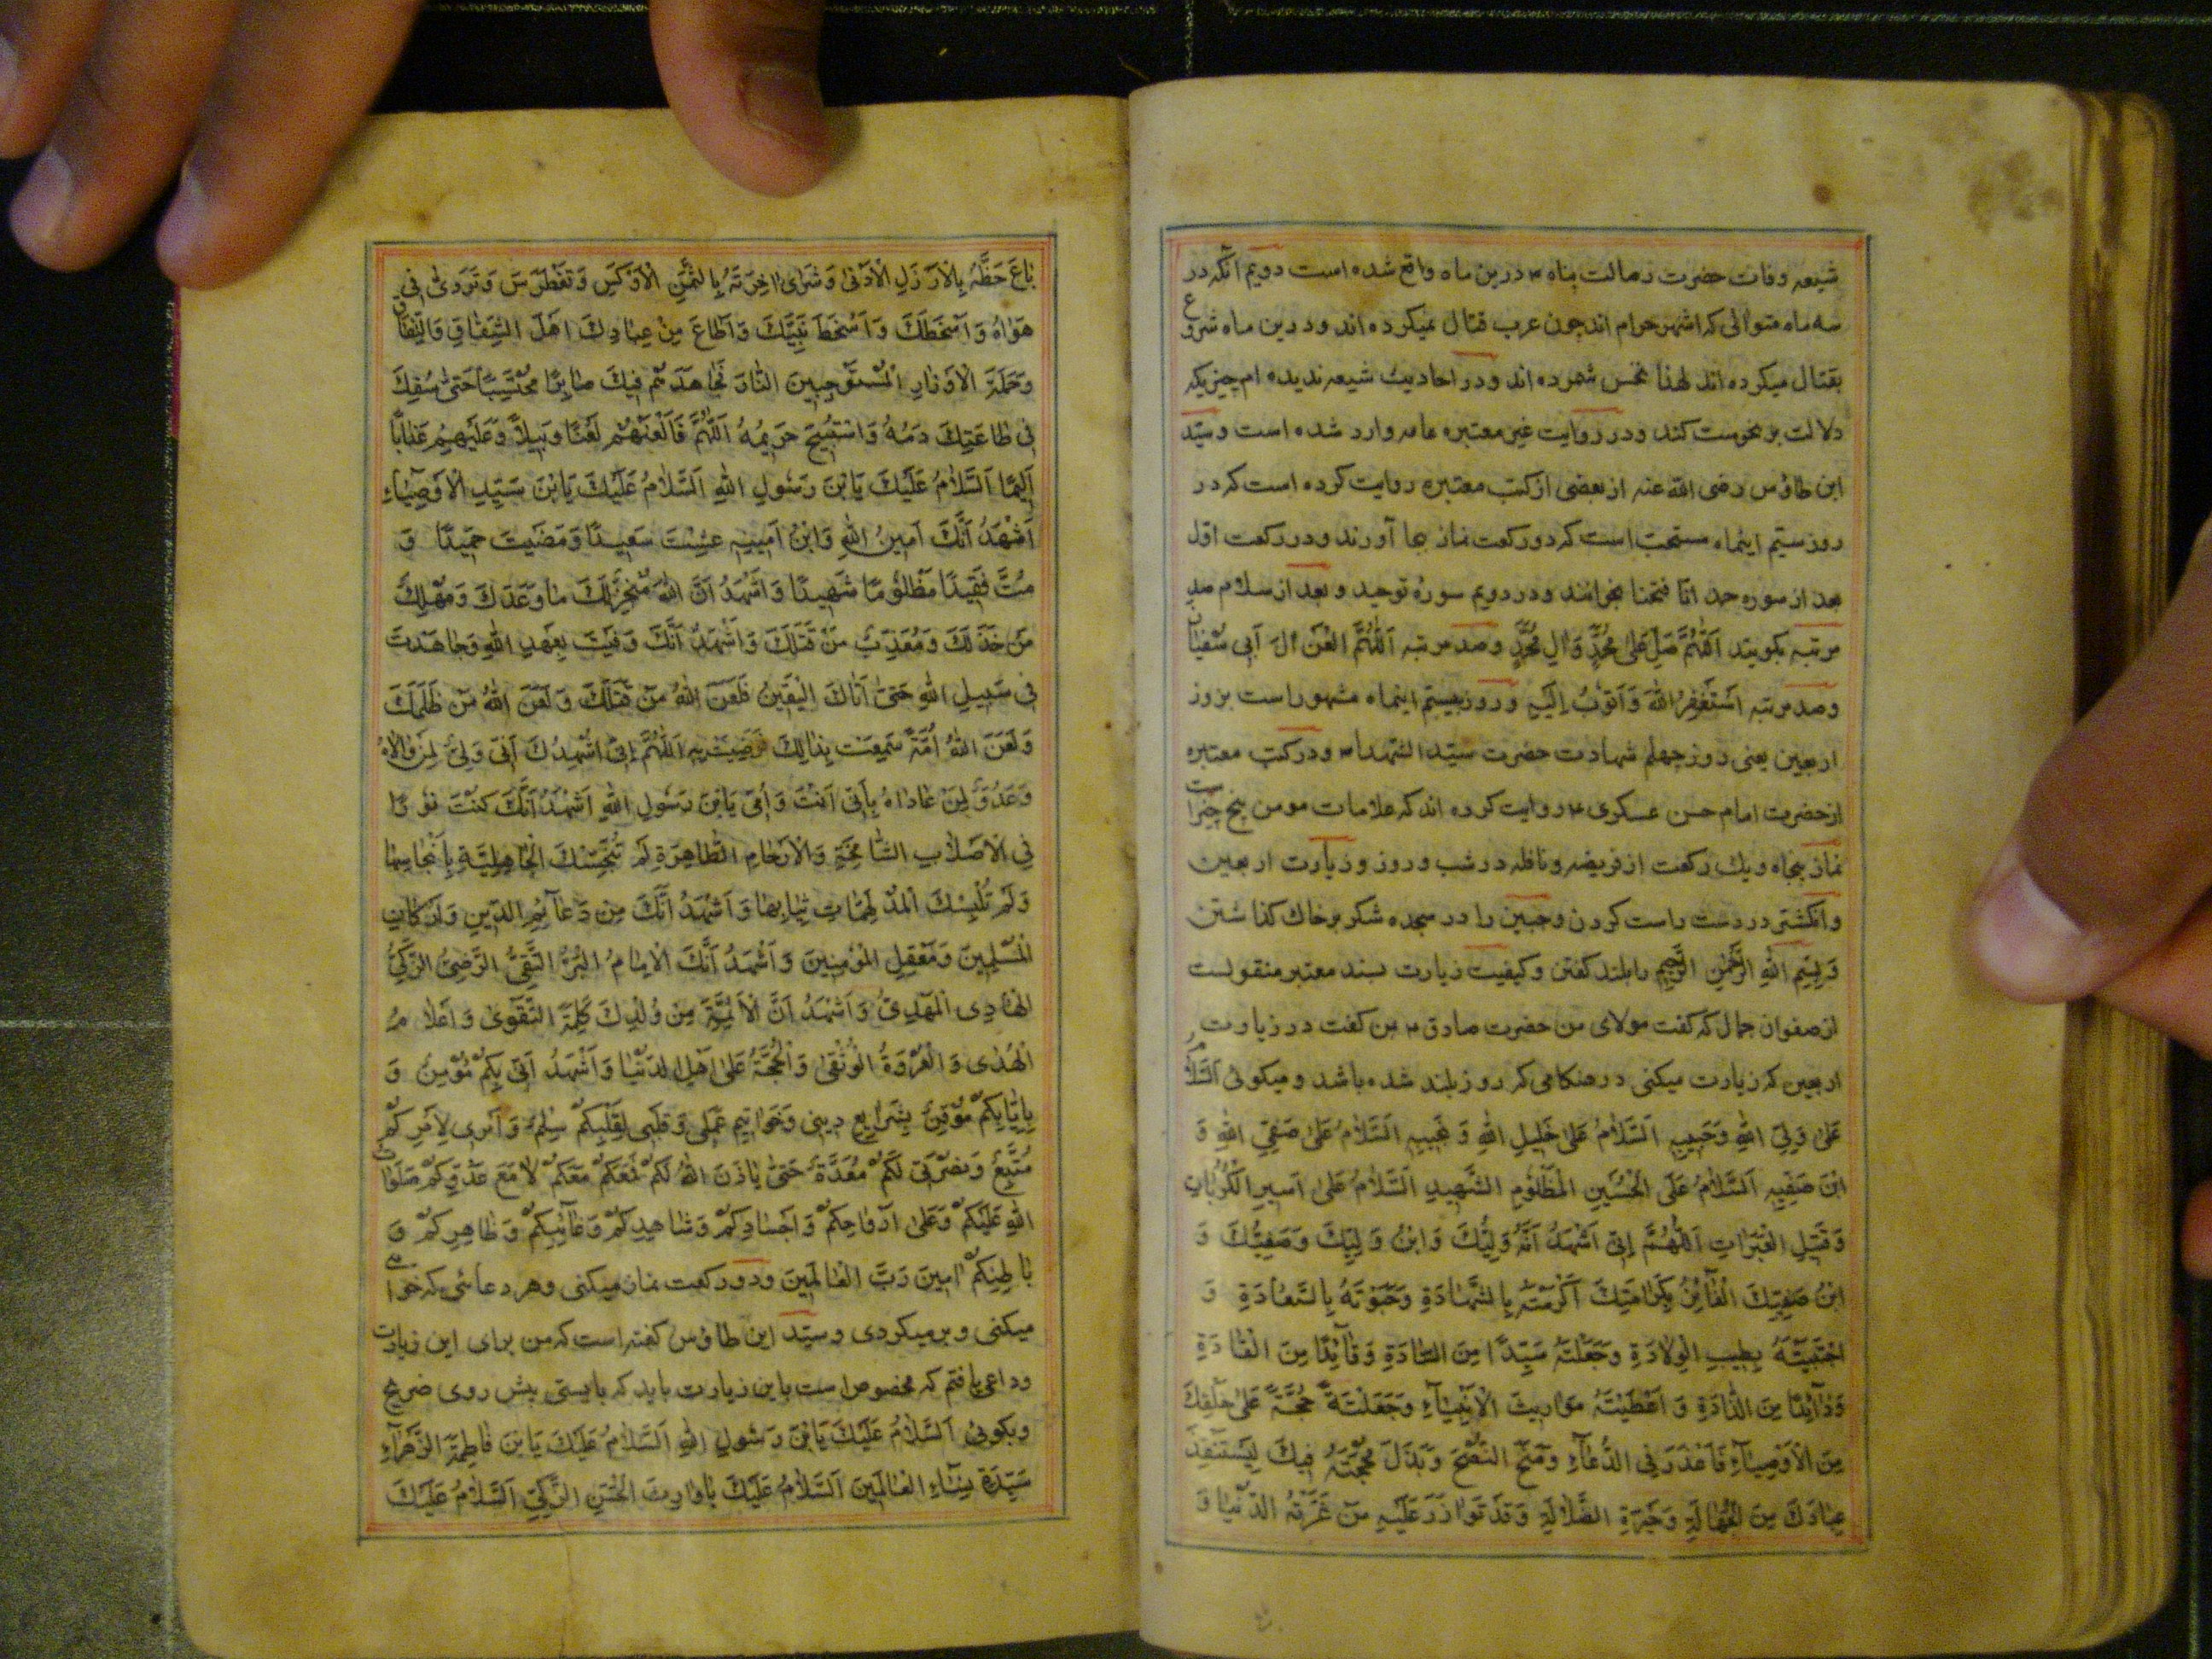 شیعه وفات حضرت رسالت پناه ص درین ماه واقع شده است دویم آنکه در
سه ماه متوالی که اشهر حرام اند چون عرب قتال نمیکرده اند و درین ماه شروع
بقتال میکرده اند لهذا نحس شمرده اند و در احادیث شیعه ندیده ام چیزیکه
دلالت بر نحوست کند و در روایت غیر معتبره عامه وارد شده است و سیّد
ابن طاوس رضی الله عنه از بعضی از کتب معتبره روایت کرده است که در
روز سیّم اینماه مستحب است که دو رکعت نماز بجا آورند و در رکعت اوّل
بعد از سوره حمد انّا فتحنا بخوانند و در دویم سورهٔ توحید و بعد از سلام صد
مرتبه بگویند اَللّٰهُمَّ صَلِّ عَلیٰ مُحَمَّدٍ وَ اٰلِ مُحَمَّدٍ و صد مرتبه اَللّٰهُمَّ الْعَنْ اٰلَ اَبی سُفْیٰانَ
و صد مرتبه اَسْتَغْفِرُ اللّٰهَ وَ اَتُوبُ اِلَیْهِ و روز بیستم اینماه مشهور است بروز
اربعین یعنی روز چهلم شهادت حضرت سیّد الشهداء و در کتب معتبره
از حضرت امام حسن عسکری ع روایت کرده اند که علامات مومن پنج چیز است
نماز پنجاه و یک رکعت از فریضه و نافله در شب و روز و زیارت اربعین
و انکشتر در دست راست کردن و جبین را در سجده شکر بر خاک کذاشتن
وَ بِسْمِ اللّٰهِ الرَّحْمٰنِ الرَّحیمِ را بلند کفتن و کیفیت زیارت بسند معتبر منقولست
از صفوان جمال که کفت مولای من حضرت صادق ع بمن کفت در زیارت
اربعین که زیارت میکنی در هنکامی که روز بلند شده باشد و میکوئی اَلسَّلاٰمُ
عَلیٰ وَلِیِّ اللّٰهِ وَ حَبیبِهِ اَلسَّلاٰمُ عَلیٰ خَلیلِ اللّٰهِ وَ نَجیبِهِ اَلسَّلاٰمُ عَلیٰ صَفِیِّ اللّٰهِ وَ
ابْنِ صَفِیِّهِ اَلسَّلاٰمُ عَلَی الْحُسَیْنِ الْمَظْلُومِ الشَّهیدِ اَلسَّلاٰمُ عَلیٰ اَسیرِ الْکُرُبٰاتِ
وَ قَتیلِ الْعَبَرٰاتِ اَللّٰهُمَّ اِنّی اَشْهَدُ اَنَّهُ وَلِیُّکَ وَ ابْنُ وَلِیِّکَ وَ صَفِیُّکَ وَ
ابْنُ صَفِیِّکَ الْفٰآئِزُ بِکَرٰامَتِکَ اَکْرَمْتَهُ بِالشَّهٰادَةِ وَ حَبَوْتَهُ بِالسَّعٰادَةِ وَ
اجْتَبَیْتَهُ بِطیبِ الْوِلاٰدَةِ وَ جَعَلْتَهُ سَیِّدًا مِنَ السّٰادَةِ وَ قٰآئِدًا مِنَ الْقٰادَةِ
وَ ذٰآئِدًا مِنَ الذّٰادَةِ وَ اَعْطَیْتَهُ مَوٰاریثَ الْاَنْبِیٰآءِ وَ جَعَلْتَهُ حُجَّةً عَلیٰ خَلْقِکَ
مِنَ الْاَوْصِیٰآءِ فَاَعْذَرَ فِی الدُّعٰآءِ وَ مَنَحَ النُّصْحَ وَ بَذَلَ مُهْجَتَهُ فیکَ لِیَسْتَنْقِذَ
عِبٰادَکَ مِنَ الْجَهٰالَةِ وَ حَیْرَةِ الضَّلاٰلَةِ وَ قَدْ تَوٰازَرَ عَلَیْهِ مَنْ غَرَّتْهُ الدُّنْیٰا وَ
بٰاعَ حَظَّهُ بِالْاَرْذَلِ الْاَدْنیٰ وَ شَریٰ اٰخِرَتَهُ بِالثَّمَنِ الْاَوْکَسِ وَ تَغَطْرَسَ وَ تَرَدّیٰ فی
هَوٰاهُ وَ اَسْخَطَکَ وَ اَسْخَطَ نَبِیَّکَ وَ اَطٰاعَ مِنْ عِبٰادِکَ اَهْلَ الشِّقٰاقِ وَ النِّفٰاقِ
وَ حَمَلَةَ الْاَوْزٰارِ الْمُسْتَوْجِبینَ النّٰارَ فَجٰاهَدَهُمْ فیکَ صٰابِرًا مُحْتَسِبًا حَتّیٰ سُفِکَ
فی طٰاعَتِکَ دَمُهُ وَ اسْتُبیحَ حَریمُهُ اَللّٰهُمَّ فَالْعَنْهُمْ لَعْنًا وَبیلاً وَ عَلَیْهِمْ عَذٰابًا
اَلیمًا اَلسَّلاٰمُ عَلَیْکَ یَابْنَ رَسُولِ اللّٰهِ اَلسَّلاٰمُ عَلَیْکَ یَابْنَ سَیِّدِ الْاَوْصِیٰآءِ
اَشْهَدُ اَنَّکَ اَمینُ اللّٰهِ وَ ابْنُ اَمینِهِ عِشْتَ سَعیدًا وَ مَضَیْتَ حَمیدًا وَ
مُتَّ فَقیدًا مَظْلُومًا شَهیدًا وَ اَشْهَدُ اَنَّ اللّٰهَ مُنْجِزٌ لَکَ مٰا وَعَدَکَ وَ مُهْلِکٌ
مَنْ خَذَلَکَ وَ مُعَذِّبٌ مَنْ قَتَلَکَ وَ اَشْهَدُ اَنَّکَ وَفَیْتَ بِعَهْدِ اللّٰهِ وَ جٰاهَدْتَ
فی سَبیلِ اللّٰهِ حَتّیٰ اَتٰاکَ الْیَقینُ فَلَعَنَ اللّٰهُ مَنْ قَتَلَکَ وَ لَعَنَ اللّٰهُ مَنْ ظَلَمَکَ
وَ لَعَنَ اللّٰهُ اُمَّةً سَمِعَتْ بِذٰلِکَ فَرَضِیَتْ بِهِ اَللّٰهُمَّ اِنّی اُشْهِدُکَ اَنّی وَلِیٌّ لِمَنْ وٰالاٰهُ
وَ عَدُوٌّ لِمَنْ عٰادٰاهُ بِاَبی اَنْتَ وَ اُمّی یَابْنَ رَسُولِ اللّٰهِ اَشْهَدُ اَنَّکَ کُنْتَ نُورًا
فِی الْاَصْلاٰبِ الشّٰامِخَةِ وَ الْاَرْحٰامِ الطّٰاهِرَةِ لَمْ تُنَجِّسْکَ الْجٰاهِلِیَّةُ بِاَنْجٰاسِهٰا
وَ لَمْ تُلْبِسْکَ الْمُدْلَهِمّٰاتُ ثِیٰابِهٰا وَ اَشْهَدُ اَنَّکَ مِنْ دَعٰآئِمِ الدّینِ وَ اَرْکٰانِ
الْمُسْلِمینَ وَ مَعْقِلِ الْمُؤْمِنینَ وَ اَشْهَدُ اَنَّکَ الْاِمٰامُ الْبَرُّ التَّقِیُّ الرَّضِیُّ الزَّکِیُّ
الْهٰادِی الْمَهْدِیُّ وَ اَشْهَدُ اَنَّ الْاَئِمَّةَ مِنْ وُلْدِکَ کَلِمَةُ التَّقْویٰ وَ اَعْلاٰمُ
الْهُدیٰ وَ الْعُرْوَةُ الْوُثْقیٰ وَ الْحُجَّةُ عَلیٰ اَهْلِ الدُّنْیٰا وَ اَشْهَدُ اَنّی بِکُمْ مُؤْمِنٌ وَ
بِاِیٰابِکُمْ مُوقِنٌ بِشَرٰایِعِ دینی وَ خَوٰاتیمِ عَمَلی وَ قَلْبی لِقَلْبِکُمْ سِلْمٌ وَ اَمْری لِاَمْرِکُمْ
مُتَّبِعٌ وَ نُصْرَتی لَکُمْ مُعَدَّةٌ حَتّیٰ یَاْذَنَ اللّٰهُ لَکُمْ فَمَعَکُمْ مَعَکُمْ لاٰ مَعَ عَدُوِّکُمْ صَلَوٰاتُ
اللّٰهِ عَلَیْکُمْ وَ عَلیٰ اَرْوٰاحِکُمْ وَ اَجْسٰادِکُمْ وَ شٰاهِدِکُمْ وَ غٰآئِبِکُمْ وَ ظٰاهِرِکُمْ وَ
بٰاطِنِکُمْ اٰمینَ رَبَّ الْعٰالَمینَ و دو رکعت نماز میکنی و هر دعائی که خواهی
میکنی و برمیکردی و سیّد ابن طاوس کفته است که من برای این زیارت
وداعی یافتم که مخصوص است باین زیارت باید که بایستی پیش روی ضریح
و بکوئی اَلسَّلاٰمُ عَلَیْکَ یَابْنَ رَسُولِ اللّٰهِ اَلسَّلاٰمُ عَلَیْکَ یَابْنَ فٰاطِمَةَ الزَّهْرٰآءِ
سَیِّدَةِ نِسٰآءِ الْعٰالَمینَ اَلسَّلاٰمُ عَلَیْکَ یٰا وٰارِثَ الْحَسَنِ الزَّکِیِّ اَلسَّلاٰمُ عَلَیْکَ